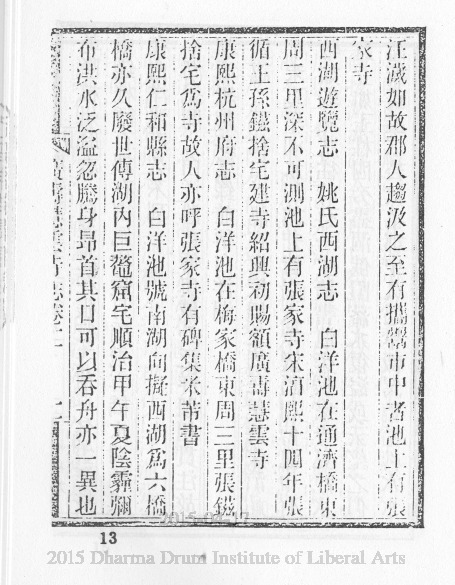 江濊如故郡人趨汲之至有攜罌市中者池上有張
家寺
西湖遊覽志　姚氏西湖志　白洋池在通濟橋東
周三里深不可測池上有張家寺宋湻熙十四年張
循王孫鎡捨宅建寺紹興初賜額廣壽慧雲寺
康熙杭州府志　白洋池在梅家橋東周三里張鎡
捨宅爲寺故人亦呼張家寺有碑集米芾書
康熙仁和縣志　白洋池號南湖向擬西湖爲六橋
橋亦久廢世傳湖內巨鼇窟宅順治甲午夏陰霾彌
布洪水泛溢忽騰身昂首其口可以吞舟亦一異也
廣壽慧雲寺志卷二
13
2015 Dharma Drum Institute of Liberal Arts